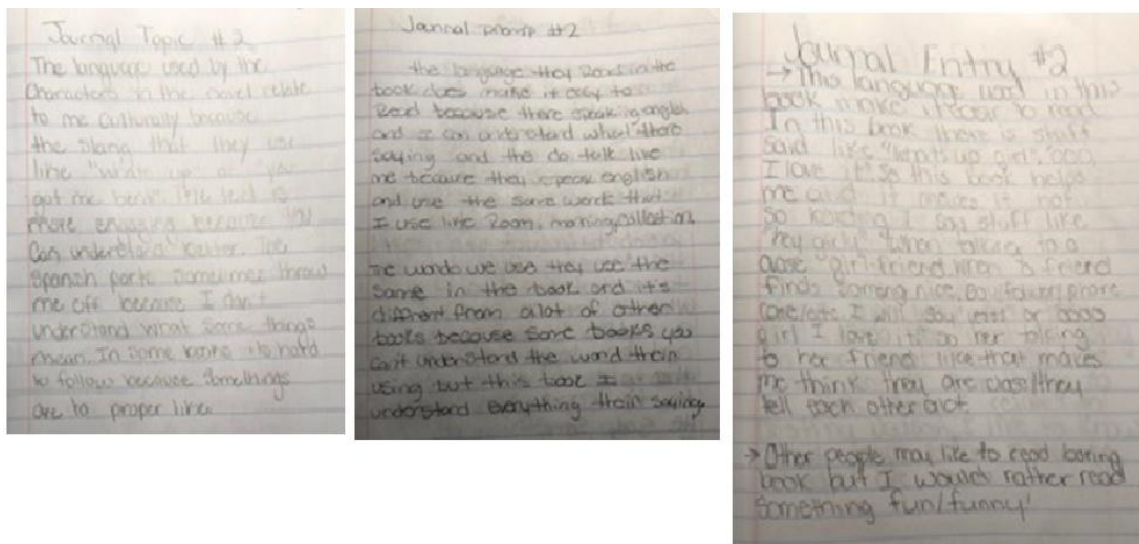 Journal Topic #2
The language used by the
Characters in the novel relate
to me culturally because
the slang that they use
like "wats up" or "you
got me bent". The text is
more engaging because you
Can understand better. The
Spanish parts sometimes throw
me off because I don't
understand what some things
mean. In some books its hard
to follow because somethings
are to proper like.
Journal prompt #2
the language they Read in the
book does make it easy to
Read because there speaking english
and I can understand what there
saying and the do talk like
me because they speak english
and use the same words that
I use like Room, morning, collection.
The words we use they use the
same in the book and it's
different from alot of other
books because some books you
can't understand the word their
using but this book I
understand everything their saying.
Journal Entry #2
→ This language used in this
book make it easy to read
In this book there is stuff
said like "girl", "ooo,
I love it" so this book helps
me and it makes it not
so boring I say stuff like
"hey girly" when to a
close girl-friend when a friend
finds nice,
I will say or oooo
girl I love it" so her talking
to her friend like that makes
me think they are close/they
tell each other
→ Other people may like to read boring
book but I would rather read
something fun/funny!